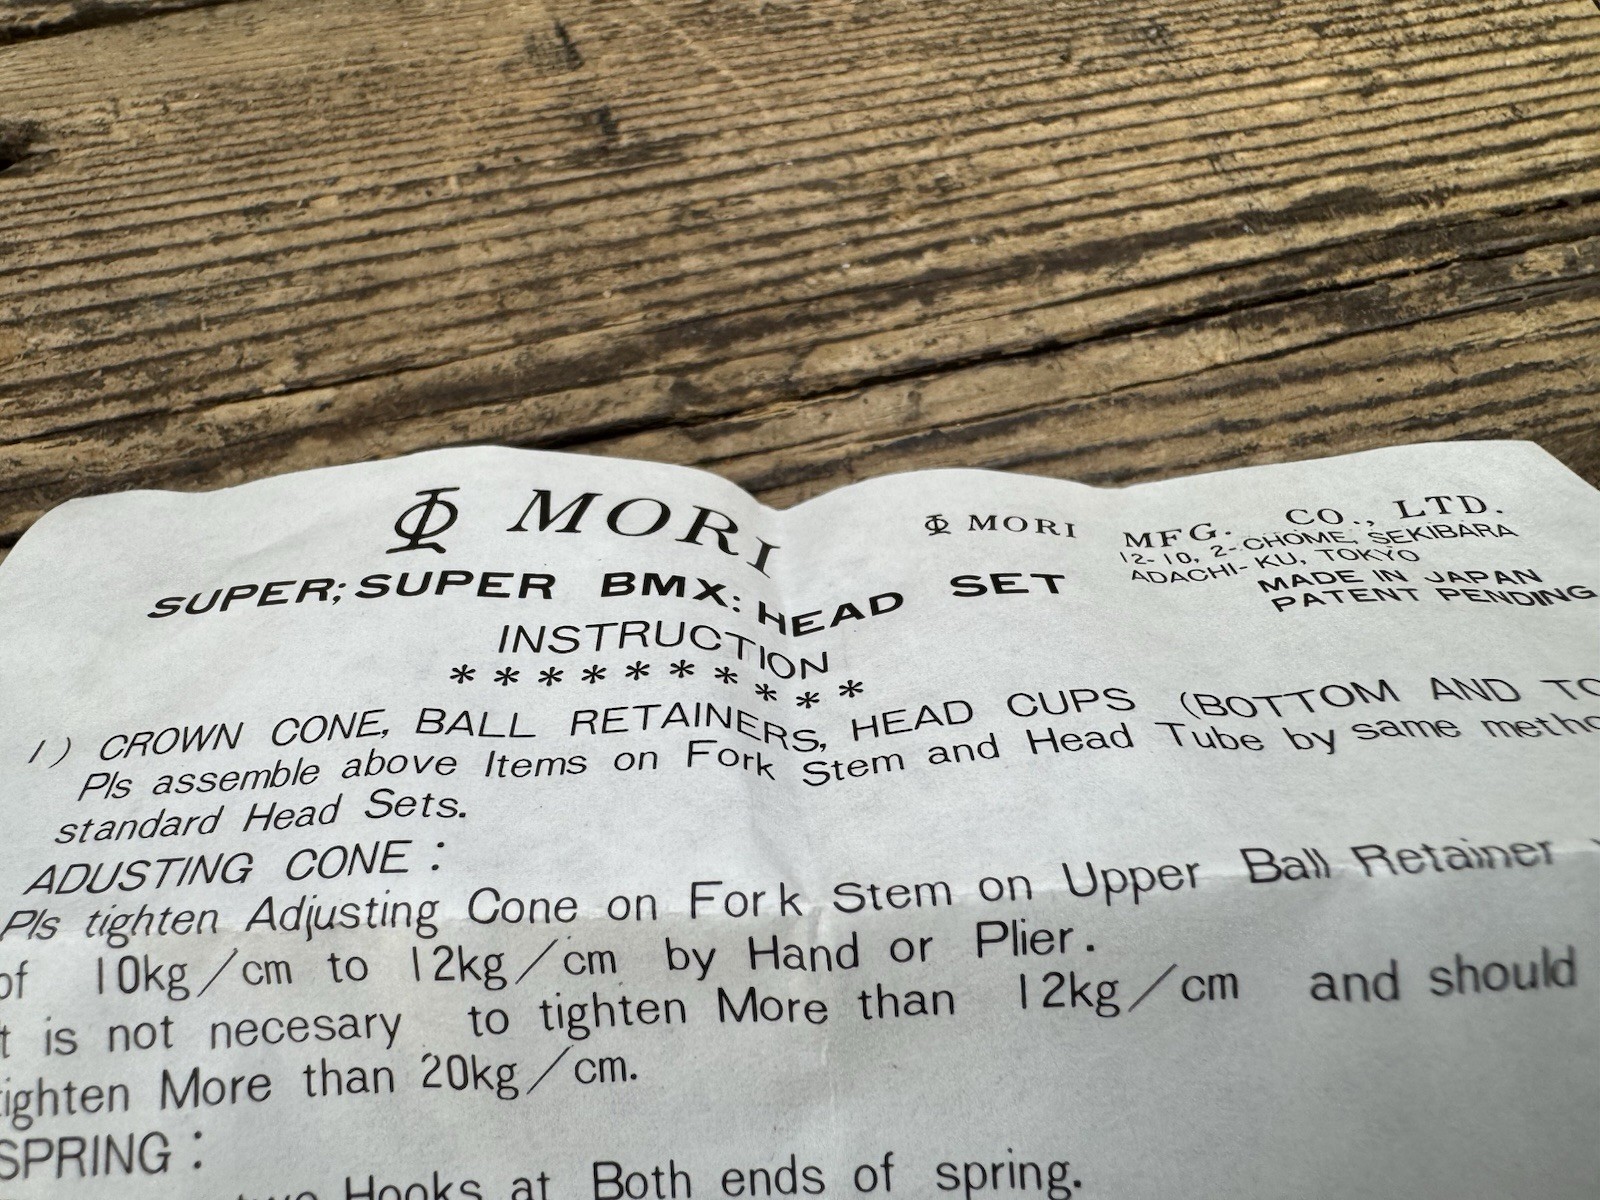 MORI
MORI MFG. CO., LTD.
12-10, 2-CHOME, SEKIBARA
ADACHI-KU, TOKYO
MADE IN JAPAN
PATENT PENDING
SUPER; SUPER BMX: HEAD SET
INSTRUCTION
* * * * * * * * * *
1) CROWN CONE, BALL RETAINERS, HEAD CUPS (BOTTOM AND
Pls assemble above Items on Fork Stem and Head Tube by same
standard Head Sets.
ADUSTING CONE :
Pls tighten Adjusting Cone on Fork Stem on Upper Ball Retainer
of 10kg/cm to 12kg/cm by Hand or Plier.
is not necesary to tighten More than 12kg/cm and should
tighten More than 20kg/cm.
SPRING :
Hooks at Both ends of spring.